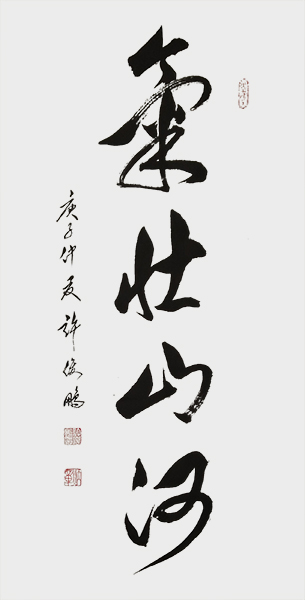 氣壯山河
庚子仲夏許俊鵬